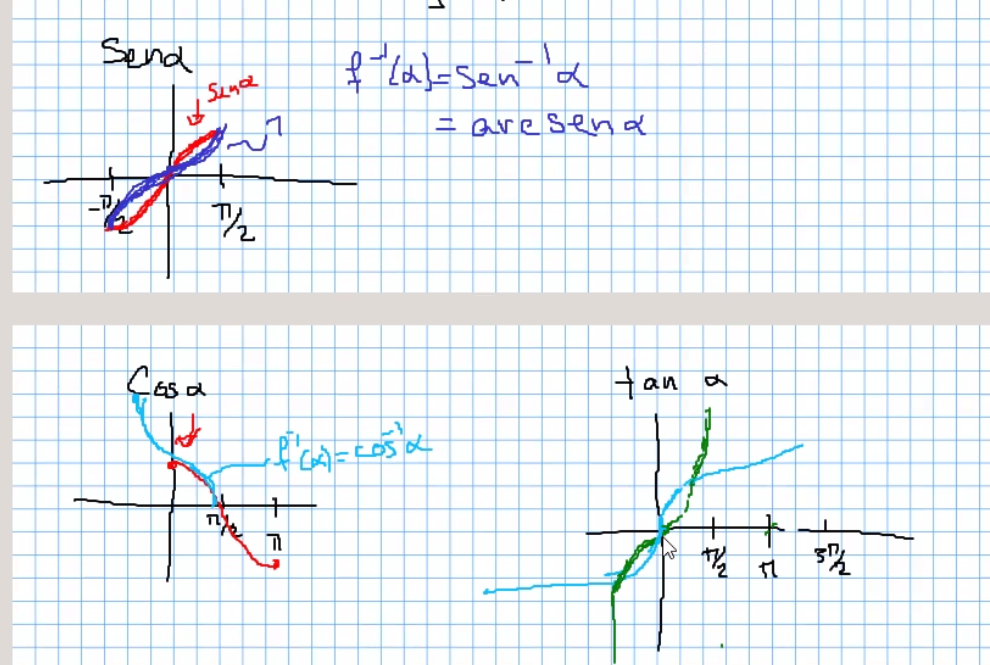 Senα
senα
f⁻¹(α)=sen⁻¹α
= arcsenα
-π/2
π/2
Cosα
f⁻¹(α)=cos⁻¹α
π/2
π
tan α
π/2
π
3π/2